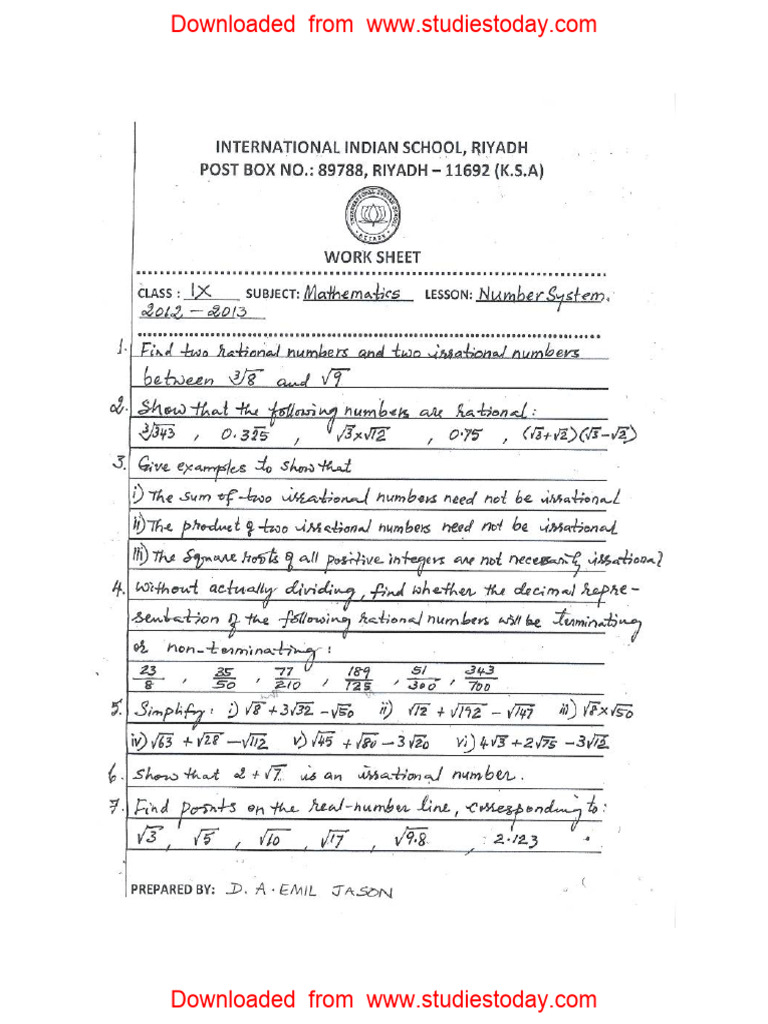 Downloaded from www.studiestoday.com
INTERNATIONAL INDIAN SCHOOL, RIYADH
POST BOX NO.: 89788, RIYADH – 11692 (K.S.A)
WORK SHEET
CLASS : IX SUBJECT: Mathematics LESSON: Number System.
2012 – 2013
1. Find two rational numbers and two irrational numbers
between ∛8 and √9
2. Show that the following numbers are rational:
∛343 , 0.32̅5̅ , √3×√12 , 0.75 , (√3+√2)(√3-√2)
3. Give examples to show that
i) The sum of two irrational numbers need not be irrational
ii) The product of two irrational numbers need not be irrational
iii) The square roots of all positive integers are not necessarily irrational
4. Without actually dividing, find whether the decimal repre-
sentation of the following rational numbers will be terminating
or non-terminating:
23/8 , 35/50 , 77/210 , 189/125 , 51/300 , 343/700
5. Simplify: i) √8 + 3√32 - √50 ii) √12 + √192 - √147 iii) √8 × √50
iv) √63 + √28 - √112 v) √45 + √80 - 3√20 vi) 4√3 + 2√75 - 3√12
6. Show that 2 + √7 is an irrational number.
7. Find points on the real-number line, corresponding to:
√3 , √5 , √10 , √17 , √9.8 , 2.123
PREPARED BY: D. A. EMIL JASON
Downloaded from www.studiestoday.com